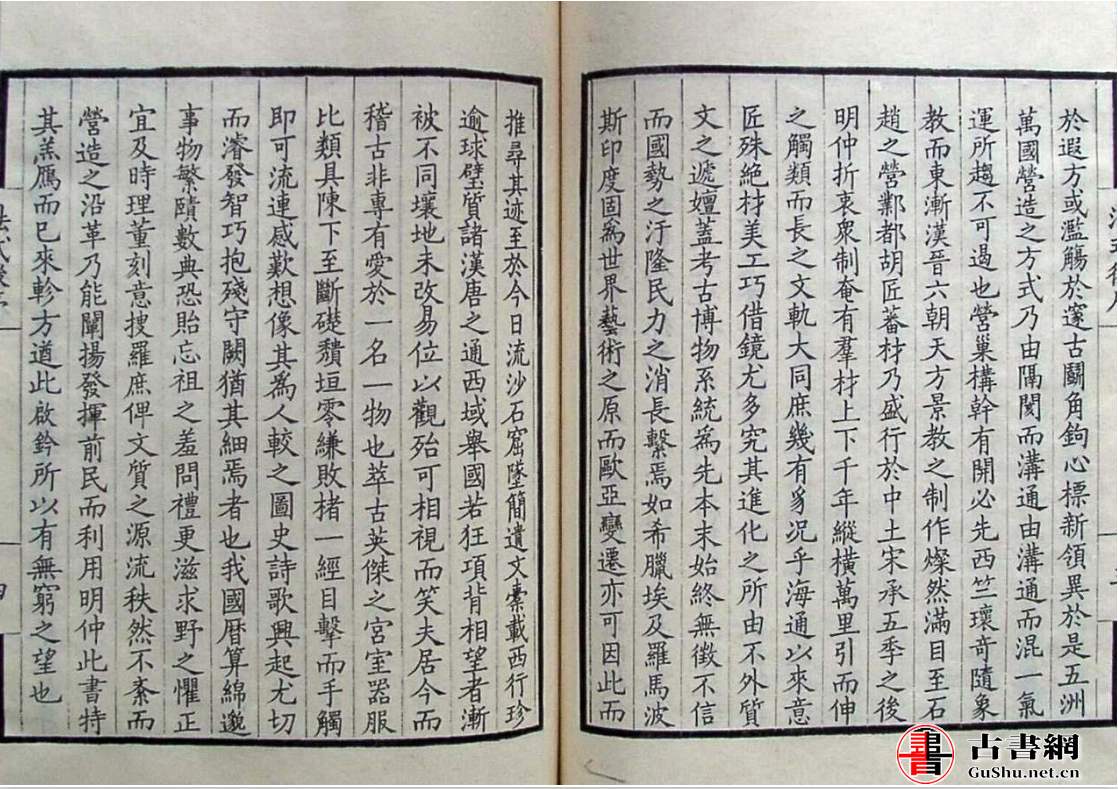 於遐方或濫觴於邃古鬭角鉤心標新領異於是五洲
萬國營造之方式乃由隔閡而溝通由溝通而混一氣
運所趨不可遏也營巢構幹有開必先西竺瓌奇隨象
教而東漸漢晉六朝天方景教之制作燦然滿目至石
趙之營鄴都胡匠蕃材乃盛行於中土宋承五季之後
明仲折衷衆制奄有羣材上下千年縱橫萬里引而伸
之觸類而長之文軌大同庶幾有豸況乎海通以來意
匠殊絕材美工巧借鏡尤多究其進化之所由不外質
文之遞嬗蓋考古博物系統爲先本末始終無徵不信
而國勢之汙隆民力之消長繫焉如希臘埃及羅馬波
斯印度固爲世界藝術之原而歐亞變遷亦可因此而
推尋其迹至於今日流沙石窟墜簡遺文橐載西行珍
逾球璧質諸漢唐之通西域舉國若狂項背相望者漸
被不同壤地未改易位以觀殆可相視而笑夫居今而
稽古非專有愛於一名一物也萃古英傑之宮室器服
比類具陳下至斷礎頹垣零縑敗楮一經目擊而手觸
即可流連感歎想像其爲人較之圖史詩歌興起尤切
而濬發智巧抱殘守闕猶其細焉者也我國曆算綿邈
事物繁賾數典恐貽忘祖之羞問禮更滋求野之懼正
宜及時理董刻意搜羅庶俾文質之源流秩然不紊而
營造之沿革乃能闡揚發揮前民而利用明仲此書特
其羔鴈而已來軫方遒此啟鈐所以有無窮之望也
古書網
GuShu.net.cn